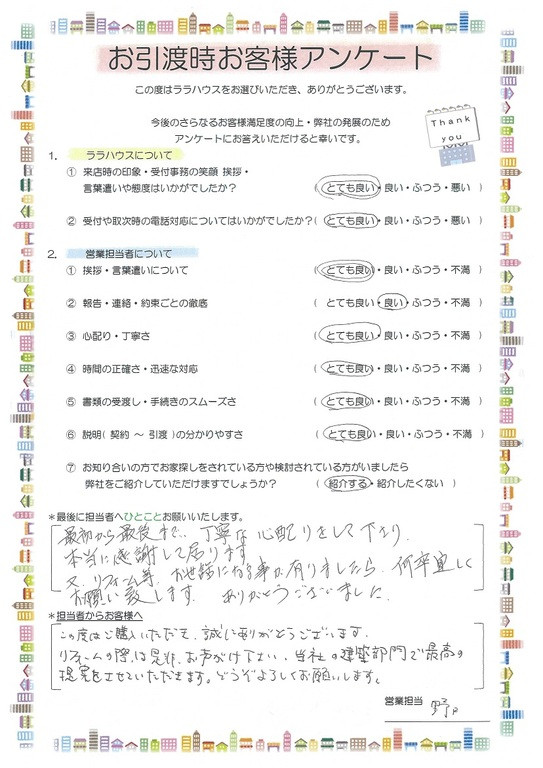 お引渡時お客様アンケート
この度はララハウスをお選びいただき、ありがとうございます。
今後のさらなるお客様満足度の向上・弊社の発展のため
アンケートにお答えいただけると幸いです。
Thank
you
1. ララハウスについて
① 来店時の印象・受付事務の笑顔 挨拶・
言葉遣いや態度はいかがでしたか? ( とても良い・良い・ふつう・悪い )
② 受付や取次時の電話対応についてはいかがでしたか?( とても良い・良い・ふつう・悪い )
2. 営業担当者について
① 挨拶・言葉遣いについて ( とても良い・良い・ふつう・不満 )
② 報告・連絡・約束ごとの徹底 ( とても良い・良い・ふつう・不満 )
③ 心配り・丁寧さ ( とても良い・良い・ふつう・不満 )
④ 時間の正確さ・迅速な対応 ( とても良い・良い・ふつう・不満 )
⑤ 書類の受渡し・手続きのスムーズさ ( とても良い・良い・ふつう・不満 )
⑥ 説明( 契約 ～ 引渡 )の分かりやすさ ( とても良い・良い・ふつう・不満 )
⑦ お知り合いの方でお家探しをされている方や検討されている方がいましたら
弊社をご紹介していただけますでしょうか? ( 紹介する・紹介したくない )
＊最後に担当者へひとことお願いいたします。
最初から最後まで、丁寧な心配りをして下さり、
本当に感謝して居ります
又、リフォーム等、お世話になる事が有りましたら、何卒宜しく
お願い致します。 ありがとうございました。
＊担当者からお客様へ
この度はご購入いただき、誠にありがとうございます。
リフォームの際は是非、お声がけ下さい、当社の建築部門で最高の
提案をさせていただきます。どうぞよろしくお願いします。
営業担当